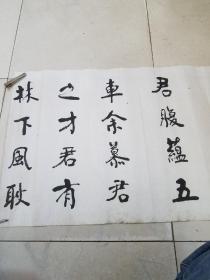 君腹蘊五
車余慕君
之才君有
林下風耿